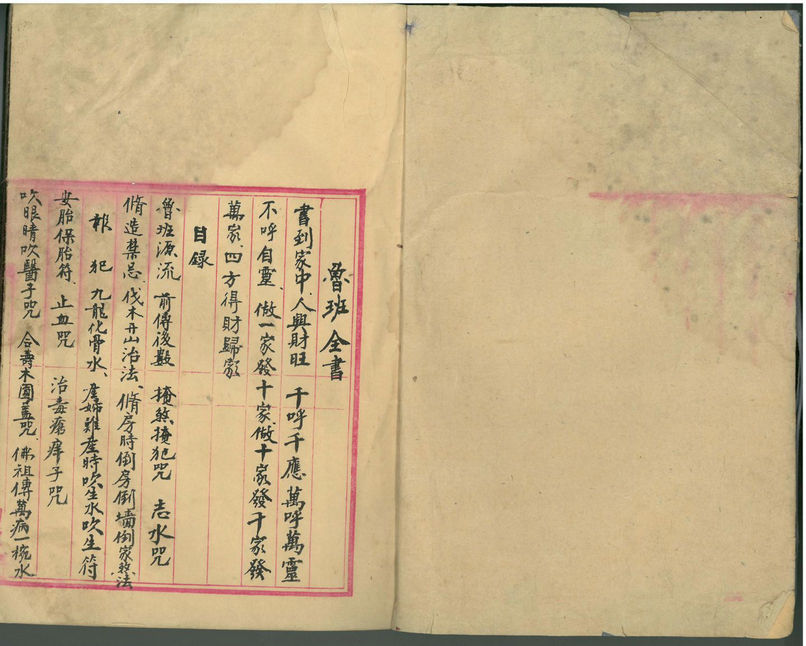 魯班全書
書到家中、人興財旺 千呼千應萬呼萬靈
不呼自靈、做一家發十家、做十家發千家發
萬家、四方得財歸家
目錄
魯班源流 前傳後數 掩煞掩犯咒 志水咒
脩造禁忌、伐木升山治法、脩房時倒房倒墻倒家煞法
報犯 九龍化骨水、產婦難產時吹生水吹生符
安胎保胎符、止血咒 治毒瘡痒子咒
吹眼睛吹醫子咒 合壽木圓蓋咒、佛祖傳萬病一椀水